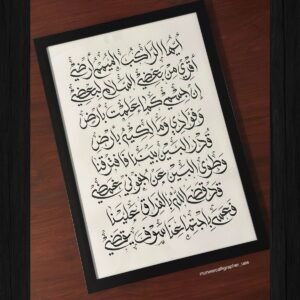 أيها الراكب الميمم أرضي
أقري من بعضي السلام لبعضي
إن جسمي كما علمت بأرض
وفؤادي ومالكيه بأرض
قدر البين بيننا فافترقنا
وطوى البين عن جفوني غمضي
قد قضى الله بالفراق علينا
فعسى باجتماعنا سوف يقضي